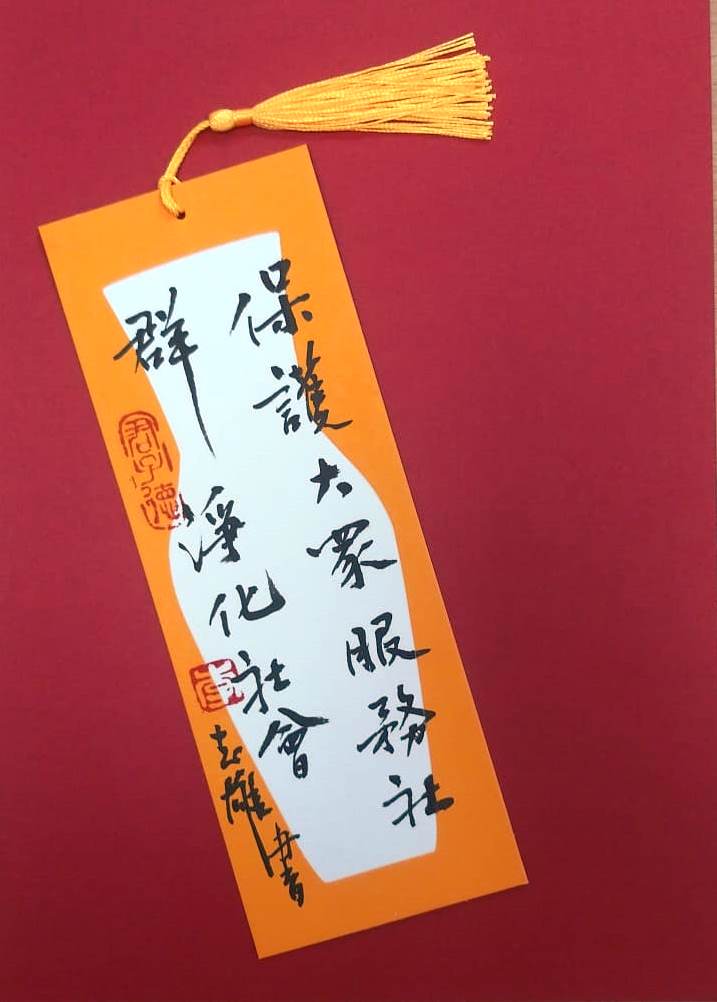 保護大眾服務社
群淨化社會
志雄書
君子德